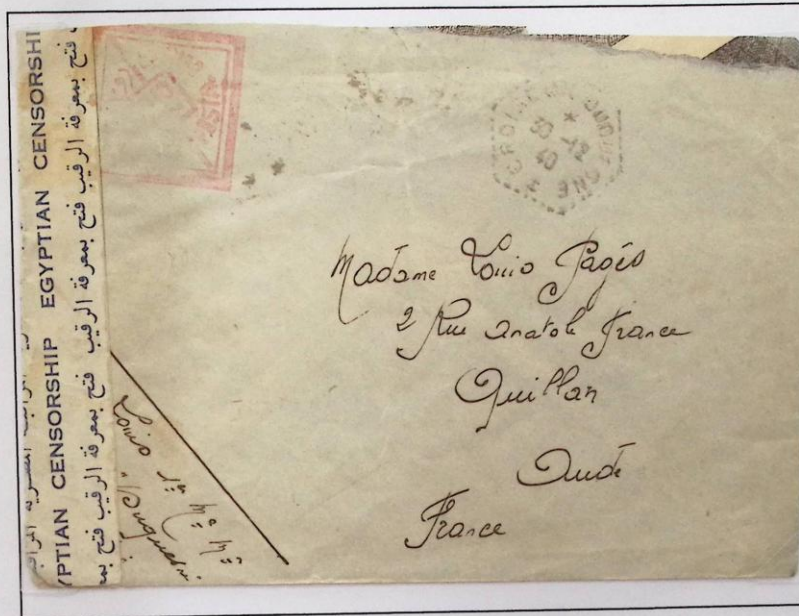 EGYPTIAN CENSORSHIP EGYPTIAN CENSORSHI
فتح بمعرفة الرقيب فتح بمعرفة الرقيب فتح بمعرفة الرقيب
CROISEUR DUQUESNE
30 -12
40
Madame Louis Pagès
2 Rue Anatole France
Quillan
Aude
France
Louis 1er Me Me
"Duquesne"